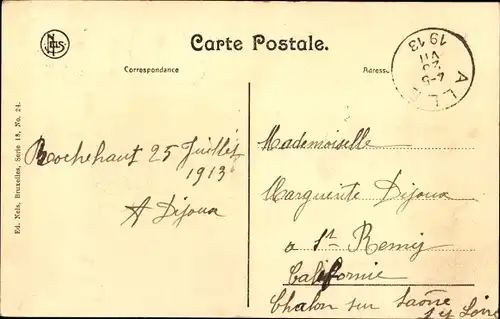 Carte Postale.
Correspondance
Adresse
ALLE
4-5
VII
1913
Ed. Nels, Bruxelles, Serie 18, No. 24.
Rochehaut 25 Juillet
1913
A Dijoux
Mademoiselle
Marguerite Dijoux
a St Remy
Californie
Chalon sur Saône
S et Loire